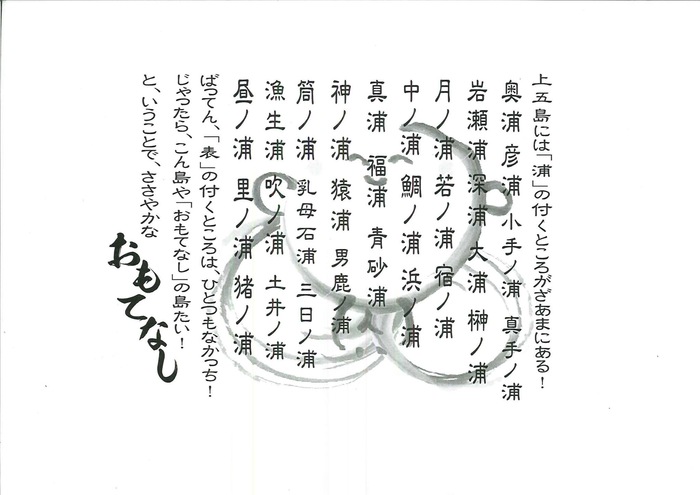 上五島には「浦」の付くところがざあまにある！
奥浦 彦浦 小手ノ浦 真手ノ浦
岩瀬浦 深浦 大浦 榊ノ浦
月ノ浦 若ノ浦 宿ノ浦
中ノ浦 鯛ノ浦 浜ノ浦
真浦 福浦 青砂浦
神ノ浦 猿浦 男鹿ノ浦
筒ノ浦 乳母石浦 三日ノ浦
漁生浦 吹ノ浦 土井ノ浦
昼ノ浦 里ノ浦 猪ノ浦
ばってん、「表」の付くところは、ひとつもなかっち！
じゃったら、こん島や「おもてなし」の島たい！
と、いうことで、ささやかな
おもてなし